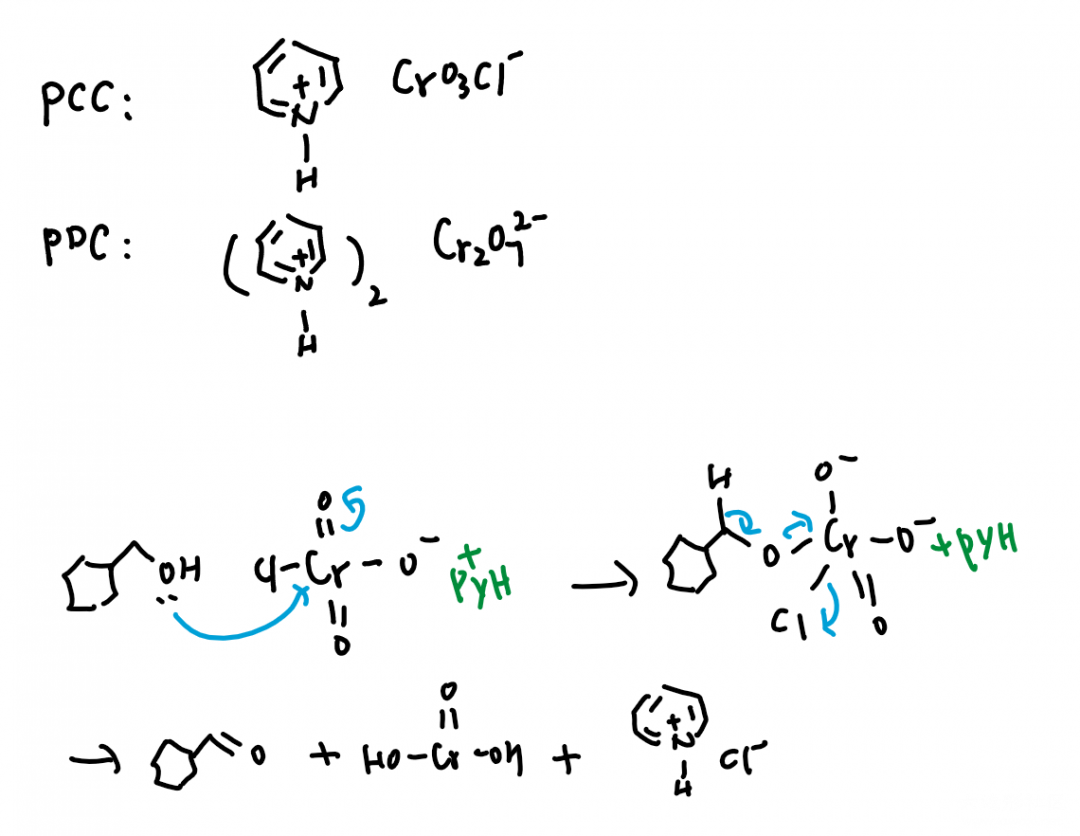 PCC: + N H CrO₃Cl⁻
PDC: ( + N H )₂ Cr₂O₇²⁻
OH Cl-Cr-O⁻ O O +PyH → H O Cr-O⁻ O⁻ Cl O +PyH
→ O + HO-Cr-OH O + + N H Cl⁻